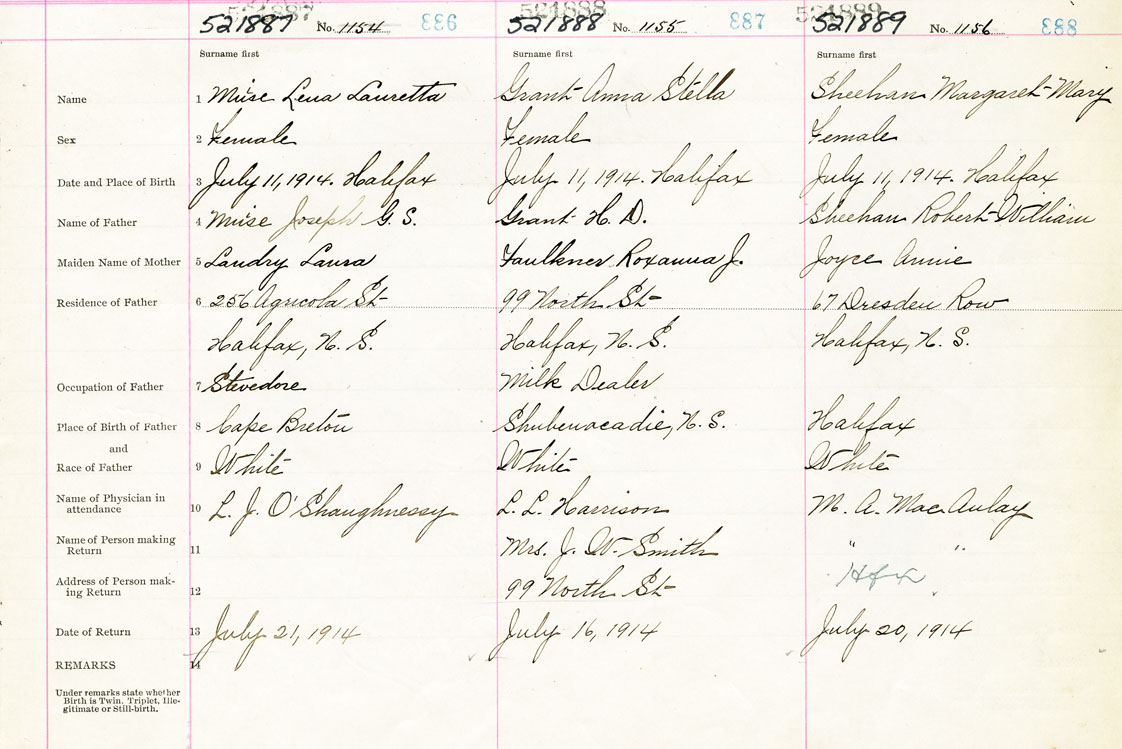 521887 No. 1154 886 521888 No. 1155 887 521889 No. 1156 888
Surname first Surname first Surname first
Name 1 Muise Lena Lauretta Grant Anna Stella Sheehan Margaret Mary
Sex 2 Female Female Female
Date and Place of Birth 3 July 11, 1914. Halifax July 11, 1914. Halifax July 11, 1914. Halifax
Name of Father 4 Muise Joseph G. S. Grant H. D. Sheehan Robert William
Maiden Name of Mother 5 Landry Laura Faulkner Roxanna J. Joyce Annie
Residence of Father 6 256 Agricola St 99 North St 67 Dresden Row
Halifax, N. S. Halifax, N. S. Halifax, N. S.
Occupation of Father 7 Stevedore Milk Dealer
Place of Birth of Father 8 Cape Breton Shubenacadie, N. S. Halifax
and
Race of Father 9 White White White
Name of Physician in
attendance 10 L. J. O'Shaughnessy L. L. Harrison M. A. MacAulay
Name of Person making
Return 11 Mrs. J. W. Smith " "
Address of Person mak-
ing Return 12 99 North St Hfx
Date of Return 13 July 21, 1914 July 16, 1914 July 20, 1914
REMARKS 14
Under remarks state whether
Birth is Twin, Triplet, Ille-
gitimate or Still-birth.